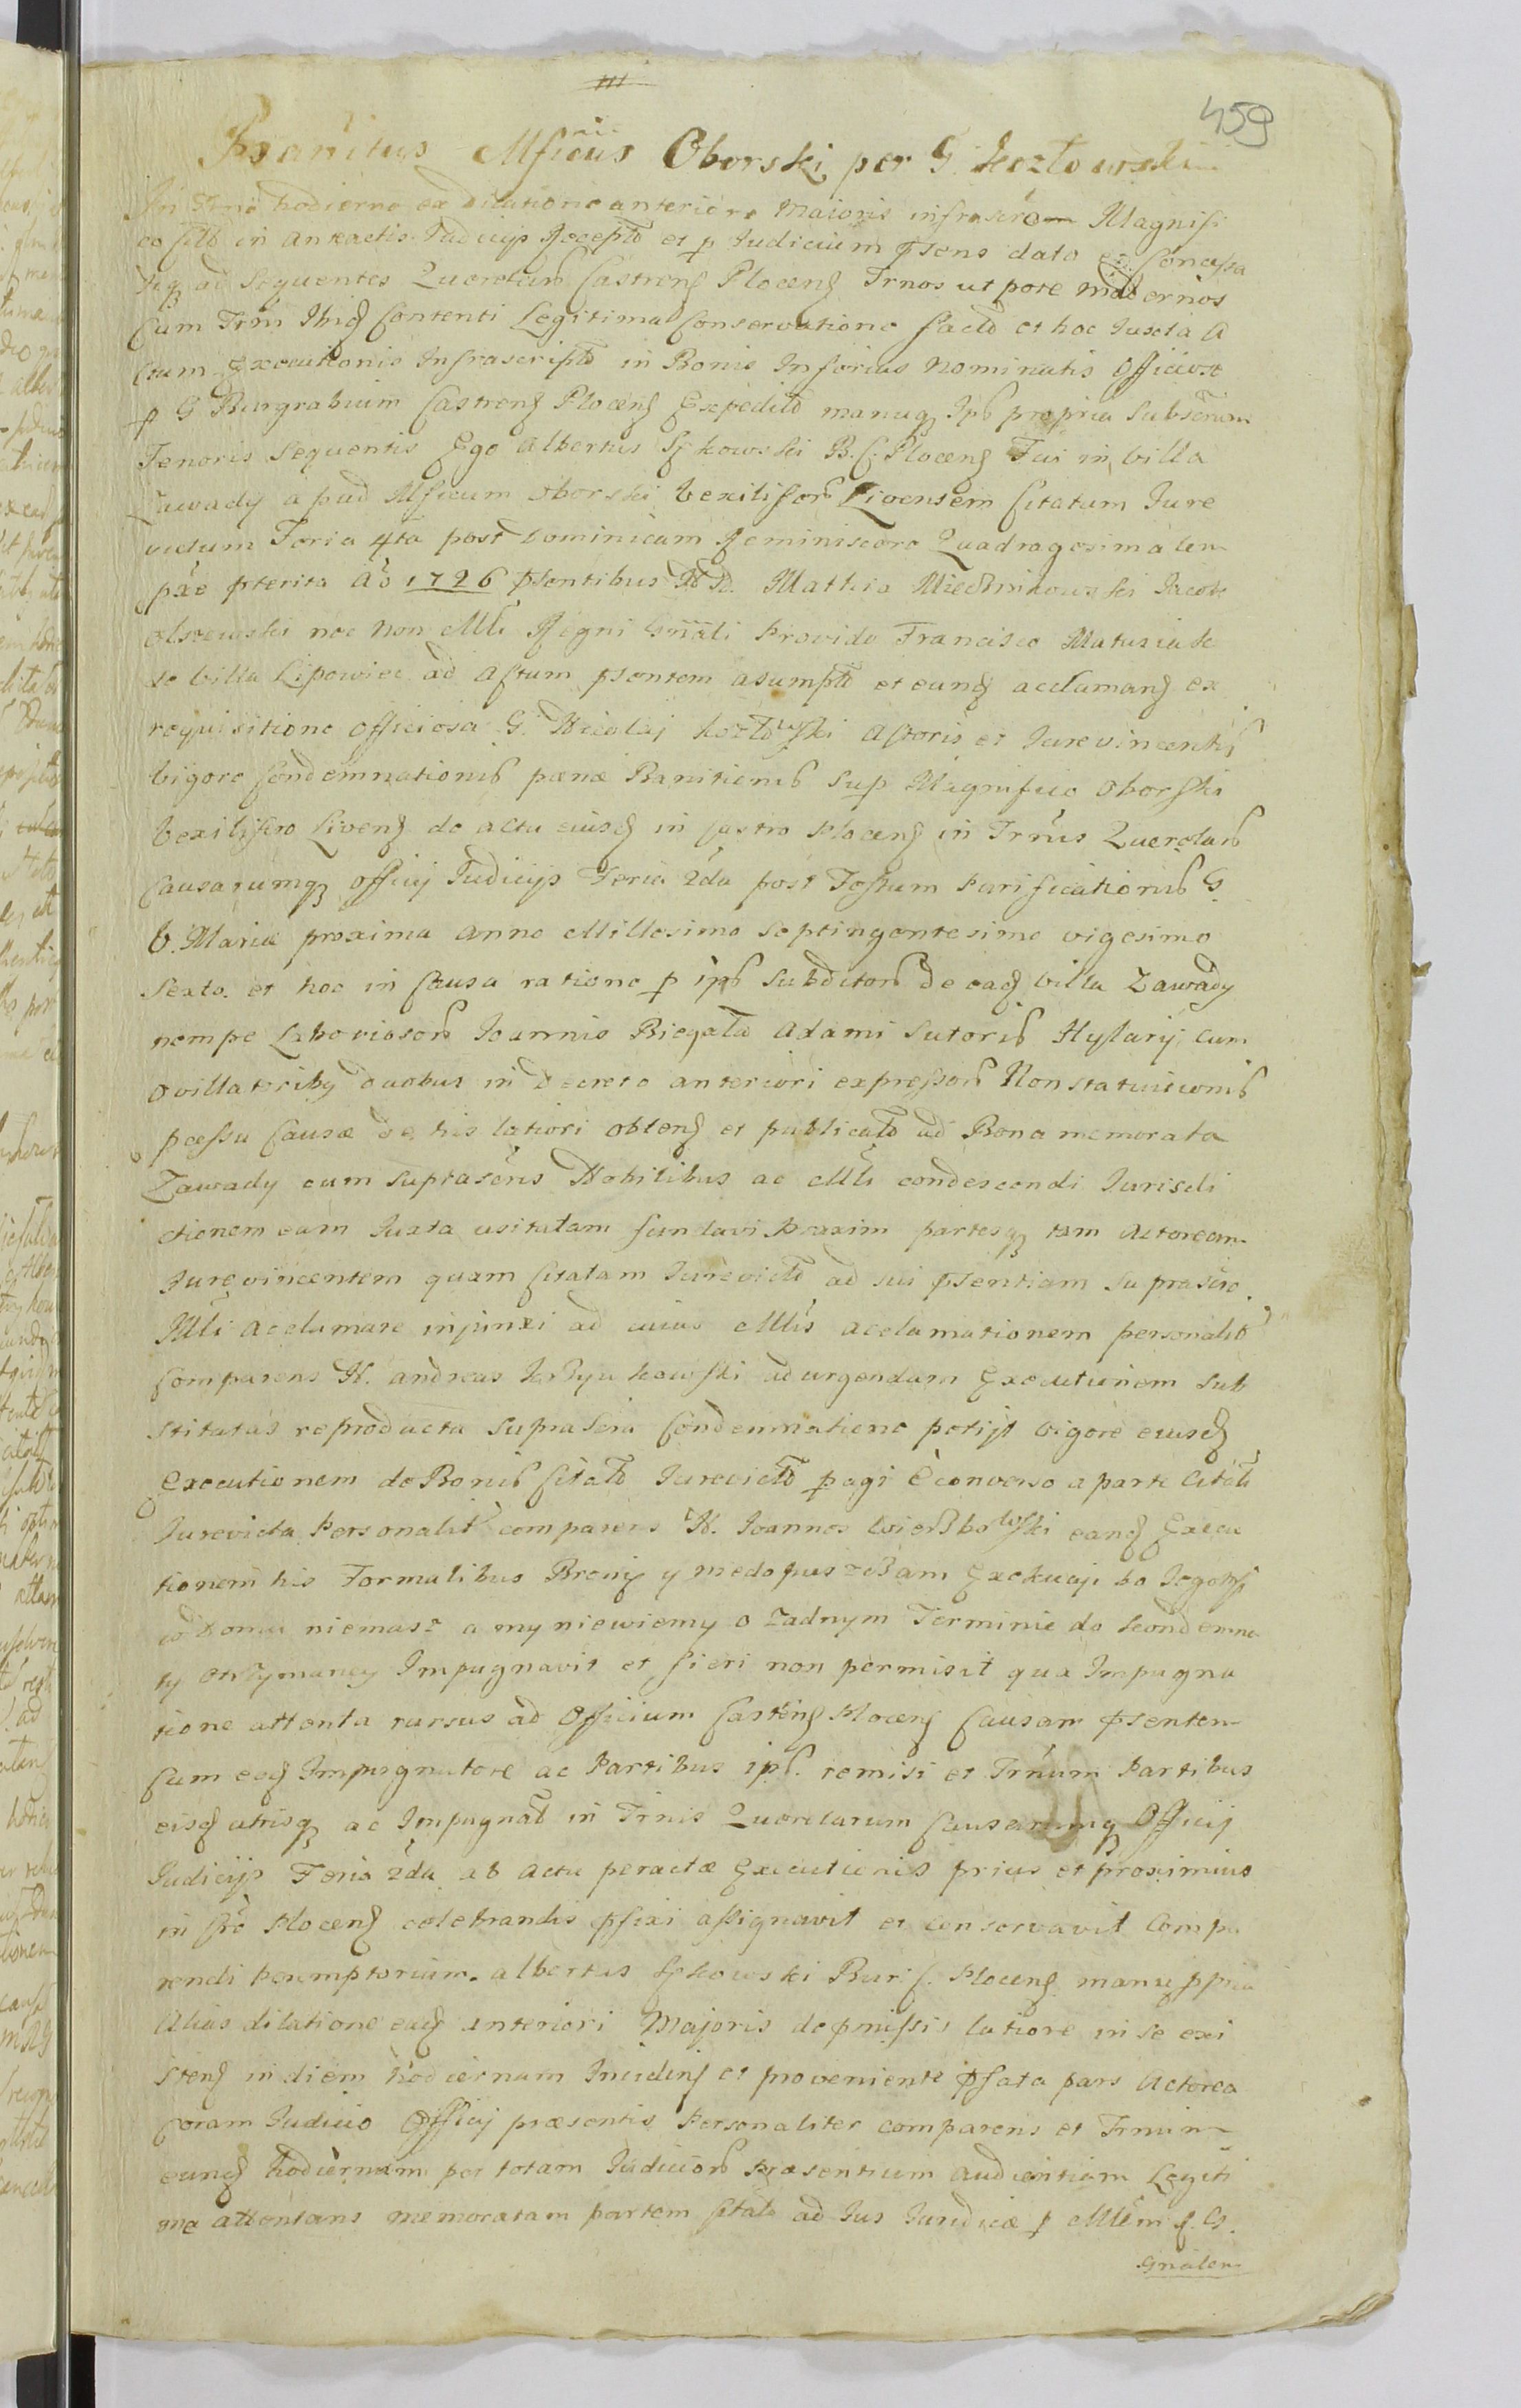 459
Banitus Mficus Oborski per G. Kozłowski
In Trno hodierno ex dilatione anteriore Maioris infrascro Magnifi
co Citto in anteactis Judicijs Recepto et p Judicium psens dato et Concessa
diq ad Sequentes Querelarũ Castreng Ploceng Trnos ut pote modernos
Cum Trni Ibidg Contenti Legitima Conservatione facta et hoc Juxta A
ctum Executionis Infrascripto in Bonis Inferius Nominatis Officiose
p G Burgrabium Castreng Ploceng Expedito manuq Ips propria Subscrum
Tenoris Sequentis Ego Albertus B. C. Ploceng Fui in villa
Zawady apud Mficum Oborski Vexiliferũ Livensem Citatum Jure
victum Feria 4ta post Dominicam Reminiscere Quadragesimalem
pxe pterita Ao 1726 psentibus NN. Mathia Jacobo
Olszewski nec non Mli Regni Gnali Provido Francisco Matusiak
de villa Lipowiec ad Actum psentem asumpto et eundg acclamang ex
requisitione officiosa G. Nicolaj Kozłowski Actoris et Jurevincentis
vigore Condemnationis pœnæ Banitionis sup Magnifico Oborski
Vexilifero Liveng de actu eiusdg in Castro Ploceng in Trnis Querelarũ
Causarumq Officij Judicijs Feria 2da post Festum Purificationis G.
V. Mariæ proxima Anno Millesimo Septingentesimo vigesimo
Sexto. et hoc in Causa ratione p ips Subditorũ de eadg villa Zawady
nempe Laboriosorũ Joannis Biegała Adami Sutoris Hylarij cum
ovillatoriby duobus in Decreto anteriori expressorũ Nonstatuitionis
pcessu Causæ de his latiori obteng et publicato ad Bona memorata
Zawady cum Suprascris Nobilibus ac Mli condescendi Jurisdi
ctionem eam Juxta usitatam fundavi Praxim partesq tam Actoream
Jurevincentem quam Citatam Jurevicto ad sui psentiam suprascro.
Mli Acclamare injunxi ad cuius Mlis acclamationem personalit
Comparens N. Andreas ad urgendam Executionem Sub
stitutus reproducta suprascra Condemnatione petijt vigore eiusdg
Executionem de Bonis Citato Jurevicto pagi E converso a parte Citata
Jurevicta Personalit comparens N. Joannes Wierzbowski eandg Execu
tionem his Formalibus Bronię y niedopuszczam Exekucyi bo Jegomści
w Domu niemasz a my niewiemy o Zadnym Terminie do kondemna
ty otrzymaney Impugnavit et fieri non permisit qua Impugna
tione attenta rursus ad Officium Castreng Ploceng Causam psentem
Cum eodg Impugnatore ac Partibus ips. remisi et Trnum Partibus
eisdg utrisq ac Impugnato in Trnis Querelarum Causarumq Officij
Judicijs Feria 2da ab actu peractæ Executionis prius et proximius
in Cro Ploceng celebrandis pfixi assignavit et conservavit Compa
rendi Peremptorium. Albertus Bur: C. Ploceng manu ppria
Alias dilatione eadg anteriori Majoris de pmissis latiore in se exi
steng in diem hodiernum Inciding et proveniente pfata pars Actorea
Coram Judicio Officij præsentis Personaliter comparens et Trnum
eundg hodiernum per totam Judiciorũ præsentium audientiam Legiti
me attentans memoratam partem Citato ad Jus Juridice p Mlem R. G.
Gnalem